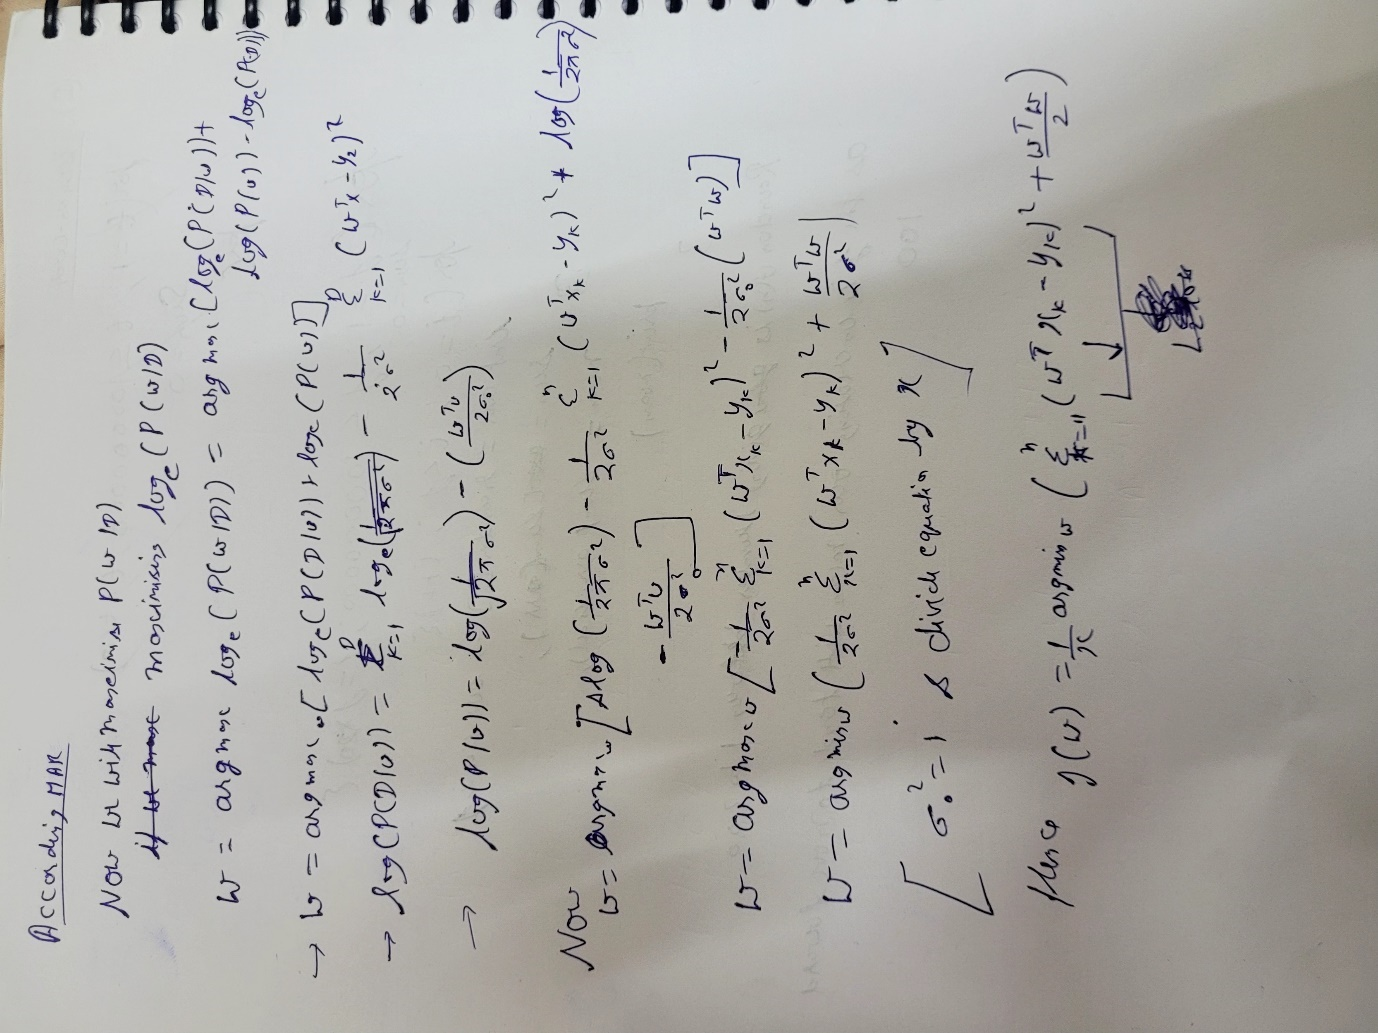 According MAP
Now we will maximise P(w|D)
maximising logₑ(P(w|D)
W = argmax logₑ(P(w|D)) = argmax(logₑ(P(D|w))+
log(P(w)) - logₑ(P(D)))
→ W = argmax_w[logₑ(P(D|w)) + logₑ(P(w))]
→ log(P(D|w)) = Σ_{k=1}^{n} logₑ(1/√2πσ²) - 1/2σ² Σ_{k=1}^{n} (wᵀx - y₂)²
→ log(P(w)) = log(1/√2πσ²) - (wᵀw/2σ₀²)
Now
W = argmax_w [n log(1/2πσ²) - 1/2σ² Σ_{k=1}^{n} (wᵀxₖ - yₖ)² + log(1/2πσ²)
- wᵀw/2σ₀²]
W = argmax_w [-1/2σ² Σ_{k=1}^{n} (wᵀxₖ - yₖ)² - 1/2σ₀² (wᵀw)]
W = argmin_w (1/2σ² Σ_{k=1}^{n} (wᵀxₖ - yₖ)² + wᵀw/2σ²)
[σ₀² = 1 & divide equation by n]
Hence g(w) = 1/n argmin_w (Σ_{k=1}^{n} (wᵀxₖ - yₖ)² + wᵀw/2)